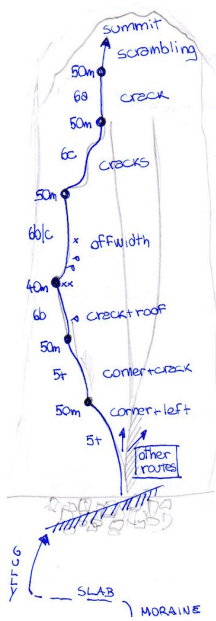 summit
scrambling
50m
6a
crack
50m
6c
cracks
50m
6b/c
offwidth
40m
6b
crack+roof
50m
5+
corner+crack
50m
corner+left
5+
other
routes
GULLY
SLAB
MORAINE